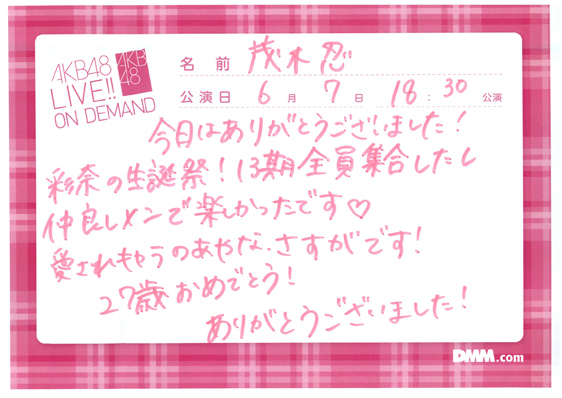 AKB48
LIVE!!
ON DEMAND
AKB
48
名前 茂木忍
公演日 6月7日 18:30公演
今日はありがとうございました!
彩奈の生誕祭!13期全員集合したし
仲良しメンで楽しかったです♡
愛されもらうのあやな、さすがです!
27歳おめでとう!
ありがとうございました!
DMM.com